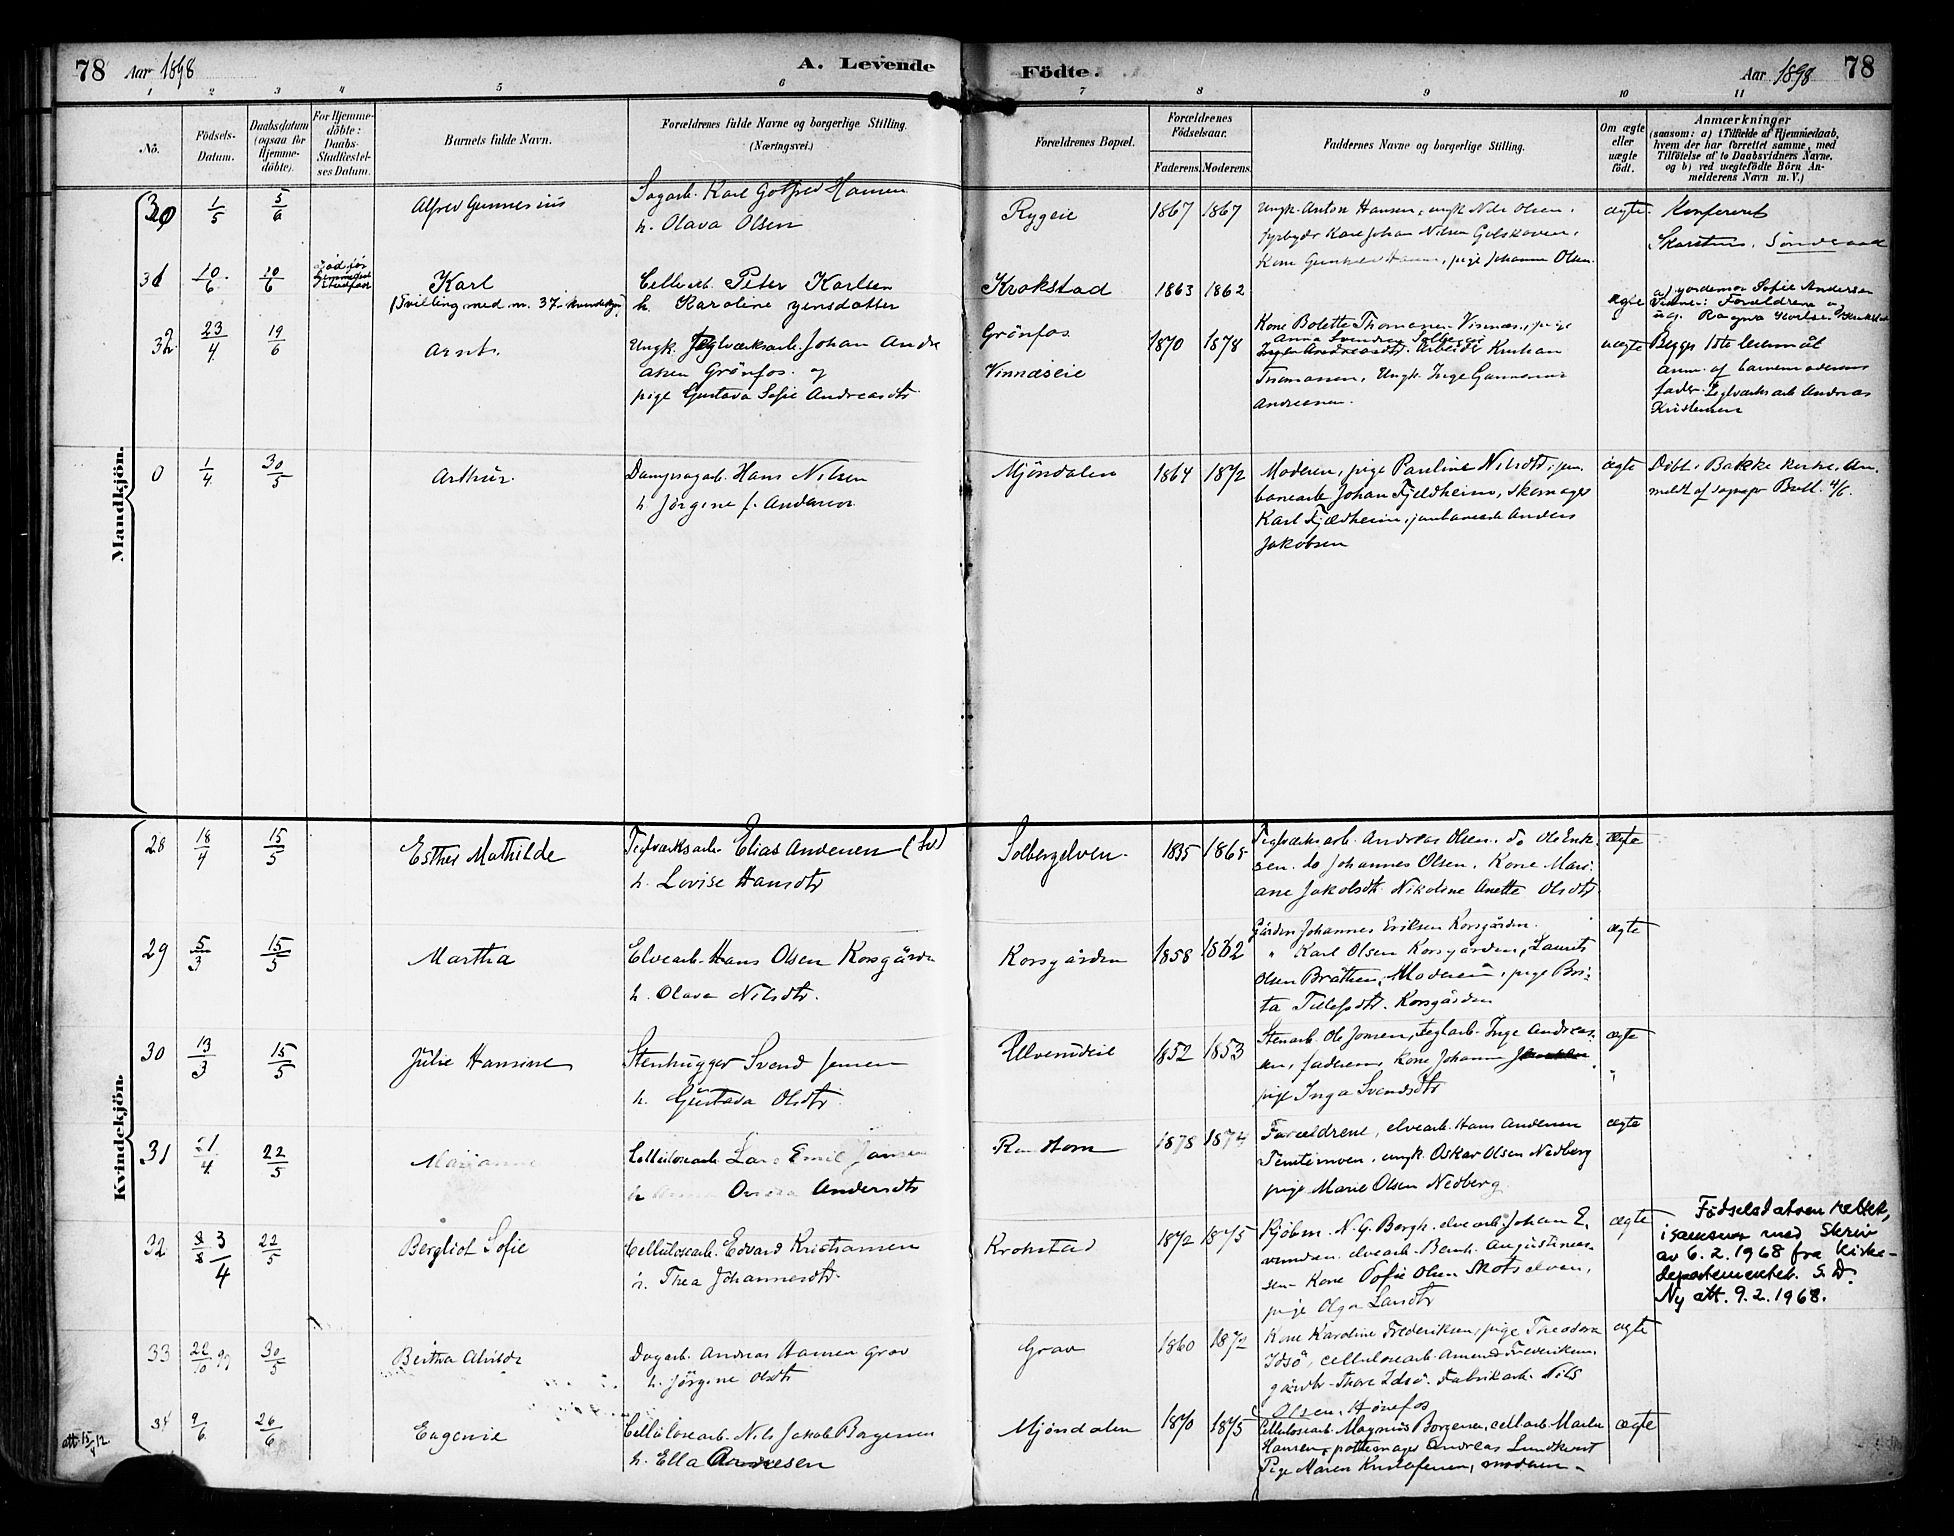 78 Aar 1898 A. Levende Födte. Aar 1898 78
1 2 3 4 5 6 7 8 9 10 11
No.
Födsels-Datum.
Daabsdatum (ogsaa for Hjemme-döbte).
For Hjemme-döbte: Daabs-Stadfæstel-ses Datum.
Barnets fulde Navn.
Forældrenes fulde Navne og borgerlige Stilling.
(Næringsvei.)
Forældrenes Bopæl.
Forældrenes Födselsaar.
Faderens Moderens
Faddernes Navne og borgerlige Stilling.
Om ægte eller uægte födt.
Anmærkninger
(saasom: a) i Tilfælde af Hjemmedaab,
hvem der har forrettet samme, med
Tilföielse af to Daabsvidners Navne,
og b) ved uægtefödte Börn An-
melderens Navn m. V.)
Mandkjön.
30 1/5 5/6 Alfred Gunnerius
Sagarb. Karl Gotfred Hansen
h. Olava Olsen
Rygeie 1867 1867
Ungk. Anton Hansen, ungk Nils Olsen,
Karl Johan Nilsen
Kone Hansen, pige Johanne Olsen
ægte
Konfereret
31 10/6 10/6
Karl
(Tvilling med nr. 37 kvindekjøn)
Cellarb. Peter Karlsen
h. Karoline Jensdatter
Krokstad 1863 1862
ægte
a) jordemor Sofie Andersen
Vidner: Forældrene og
32 23/4 19/6 Arnt.
Ungk. Teglværksarb. Johan Andre
asen Grönfos. og
pige Gustava Sofie Andreasdtr
Grönfos
Vinnæseie
1870 1878
Kone Bolette Thomasen Vinnæs, pige
Arbeider Kristian
Thomassen, Ungk. Inge Gunnerius
Andreasen.
uægte
Begges 1ste leiermål
anm. af barnemoderens
fader Teglværksarb Andreas
Kristensen
0 1/4 30/5 Arthur.
Dampsagarb. Hans Nilsen
h. Jörgine f. Andersen
Mjöndalen 1864 1872
Moderen, pige Pauline Nilsdtr, jern
banearb Johan Fjeldheim, skomager
Karl Fjeldheim, jernbanearb Anders
Jakobsen
ægte
Döbt i Bakke kirke. An.
meldt af sogneprest Bull. 4/6.
Kvindekjön.
28 18/4 15/5 Esther Mathilde
Teglværksarb. Elias Andersen (Sv)
h. Lovise Hansdtr
Solbergelven. 1835 1865
Teglværksarb. Andreas Olsen. do Ole Erik-
sen. do Johannes Olsen, Kone Mari-
ane Jakobsdtr. Nikoline Anette Olsdtr
ægte
29 5/3 15/5 Martha
Elvearb. Hans Olsen Korsgården
h. Olava Nilsdtr.
Korsgården 1858 1862
Gårdbr Johannes Eriksen Korsgården.
" Karl Olsen Korsgården, Laurits
Olsen Bråthen, Moderen, pige Bri-
ta Tollefsdtr. Korsgården
ægte
30 13/3 15/5 Julie Hansine
Stenhugger Svend Jensen
h. Gustava Olsdtr.
Ulverudeie 1852 1853
Stenarb. Ole Jonsen, teglarb. Inge Andreas-
sen, faderen, Kone Johanne
pige Inga Svendsdtr
ægte
"
31 21/4 22/5 Marianne
Cellulosearb. Lars Emil Jansen
h. Andersdtr
1878 1874
Forældrene, elvearb. Hans Andersen
ungk. Oskar Olsen Nedberg
pige Marie Olsen Nedberg
ægte
32 3/4 22/5 Bergliot Sofie
Cellulosearb. Edvard Kristiansen
h. Thea Johannesdtr
Krokstad 1872 1875
Kjöbm. N. G. Bergh, elvearb. Johan E.
elvearb. Bernh. Augustinus-
sen Kone Sofie Olsen Skotselven,
pige Olga Larsdtr
ægte
Födselsdatoen rettet,
i samsvar med Skriv
av 6.2.1968 fra Kirke-
departementet. S.D.
Ny att. 9.2.1968.
33 22/10 97 30/5 Bertha Alvilde
Dagarb. Andreas Hansen Grav
h. Jörgine Olsdtr
Grav 1860 1872
Kone Karoline Frederiksen, pige Theodora
Idsö, cellulosearb. Frederiksen,
gårdbr. Thore Idsö. Fabrikarb. Nils
Olsen, Hönefos
ægte
34 9/6 26/6 Eugenie
Cellulosearb. Nils Jakob Borgersen
h. Ella Andresen
Mjöndalen 1870 1875
Cellulosearb. Magnus Borgersen, cellarb. Martin
Hansen, pottemager Andreas Lundkvist
Pige Maren Kristofersen, moderen
ægte
att. 15/5 12